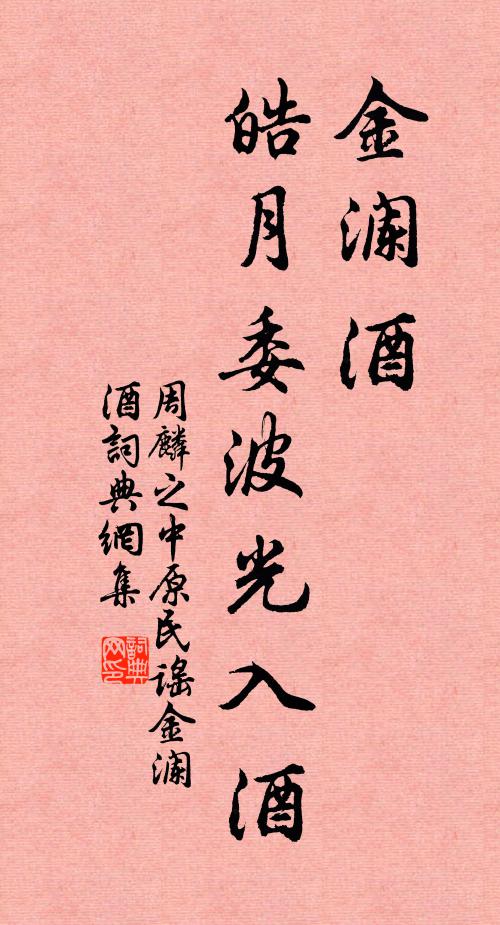 金瀾酒
皓月委波光入酒
周麟之中原民謠金瀾
酒詞典網集
詞典网印